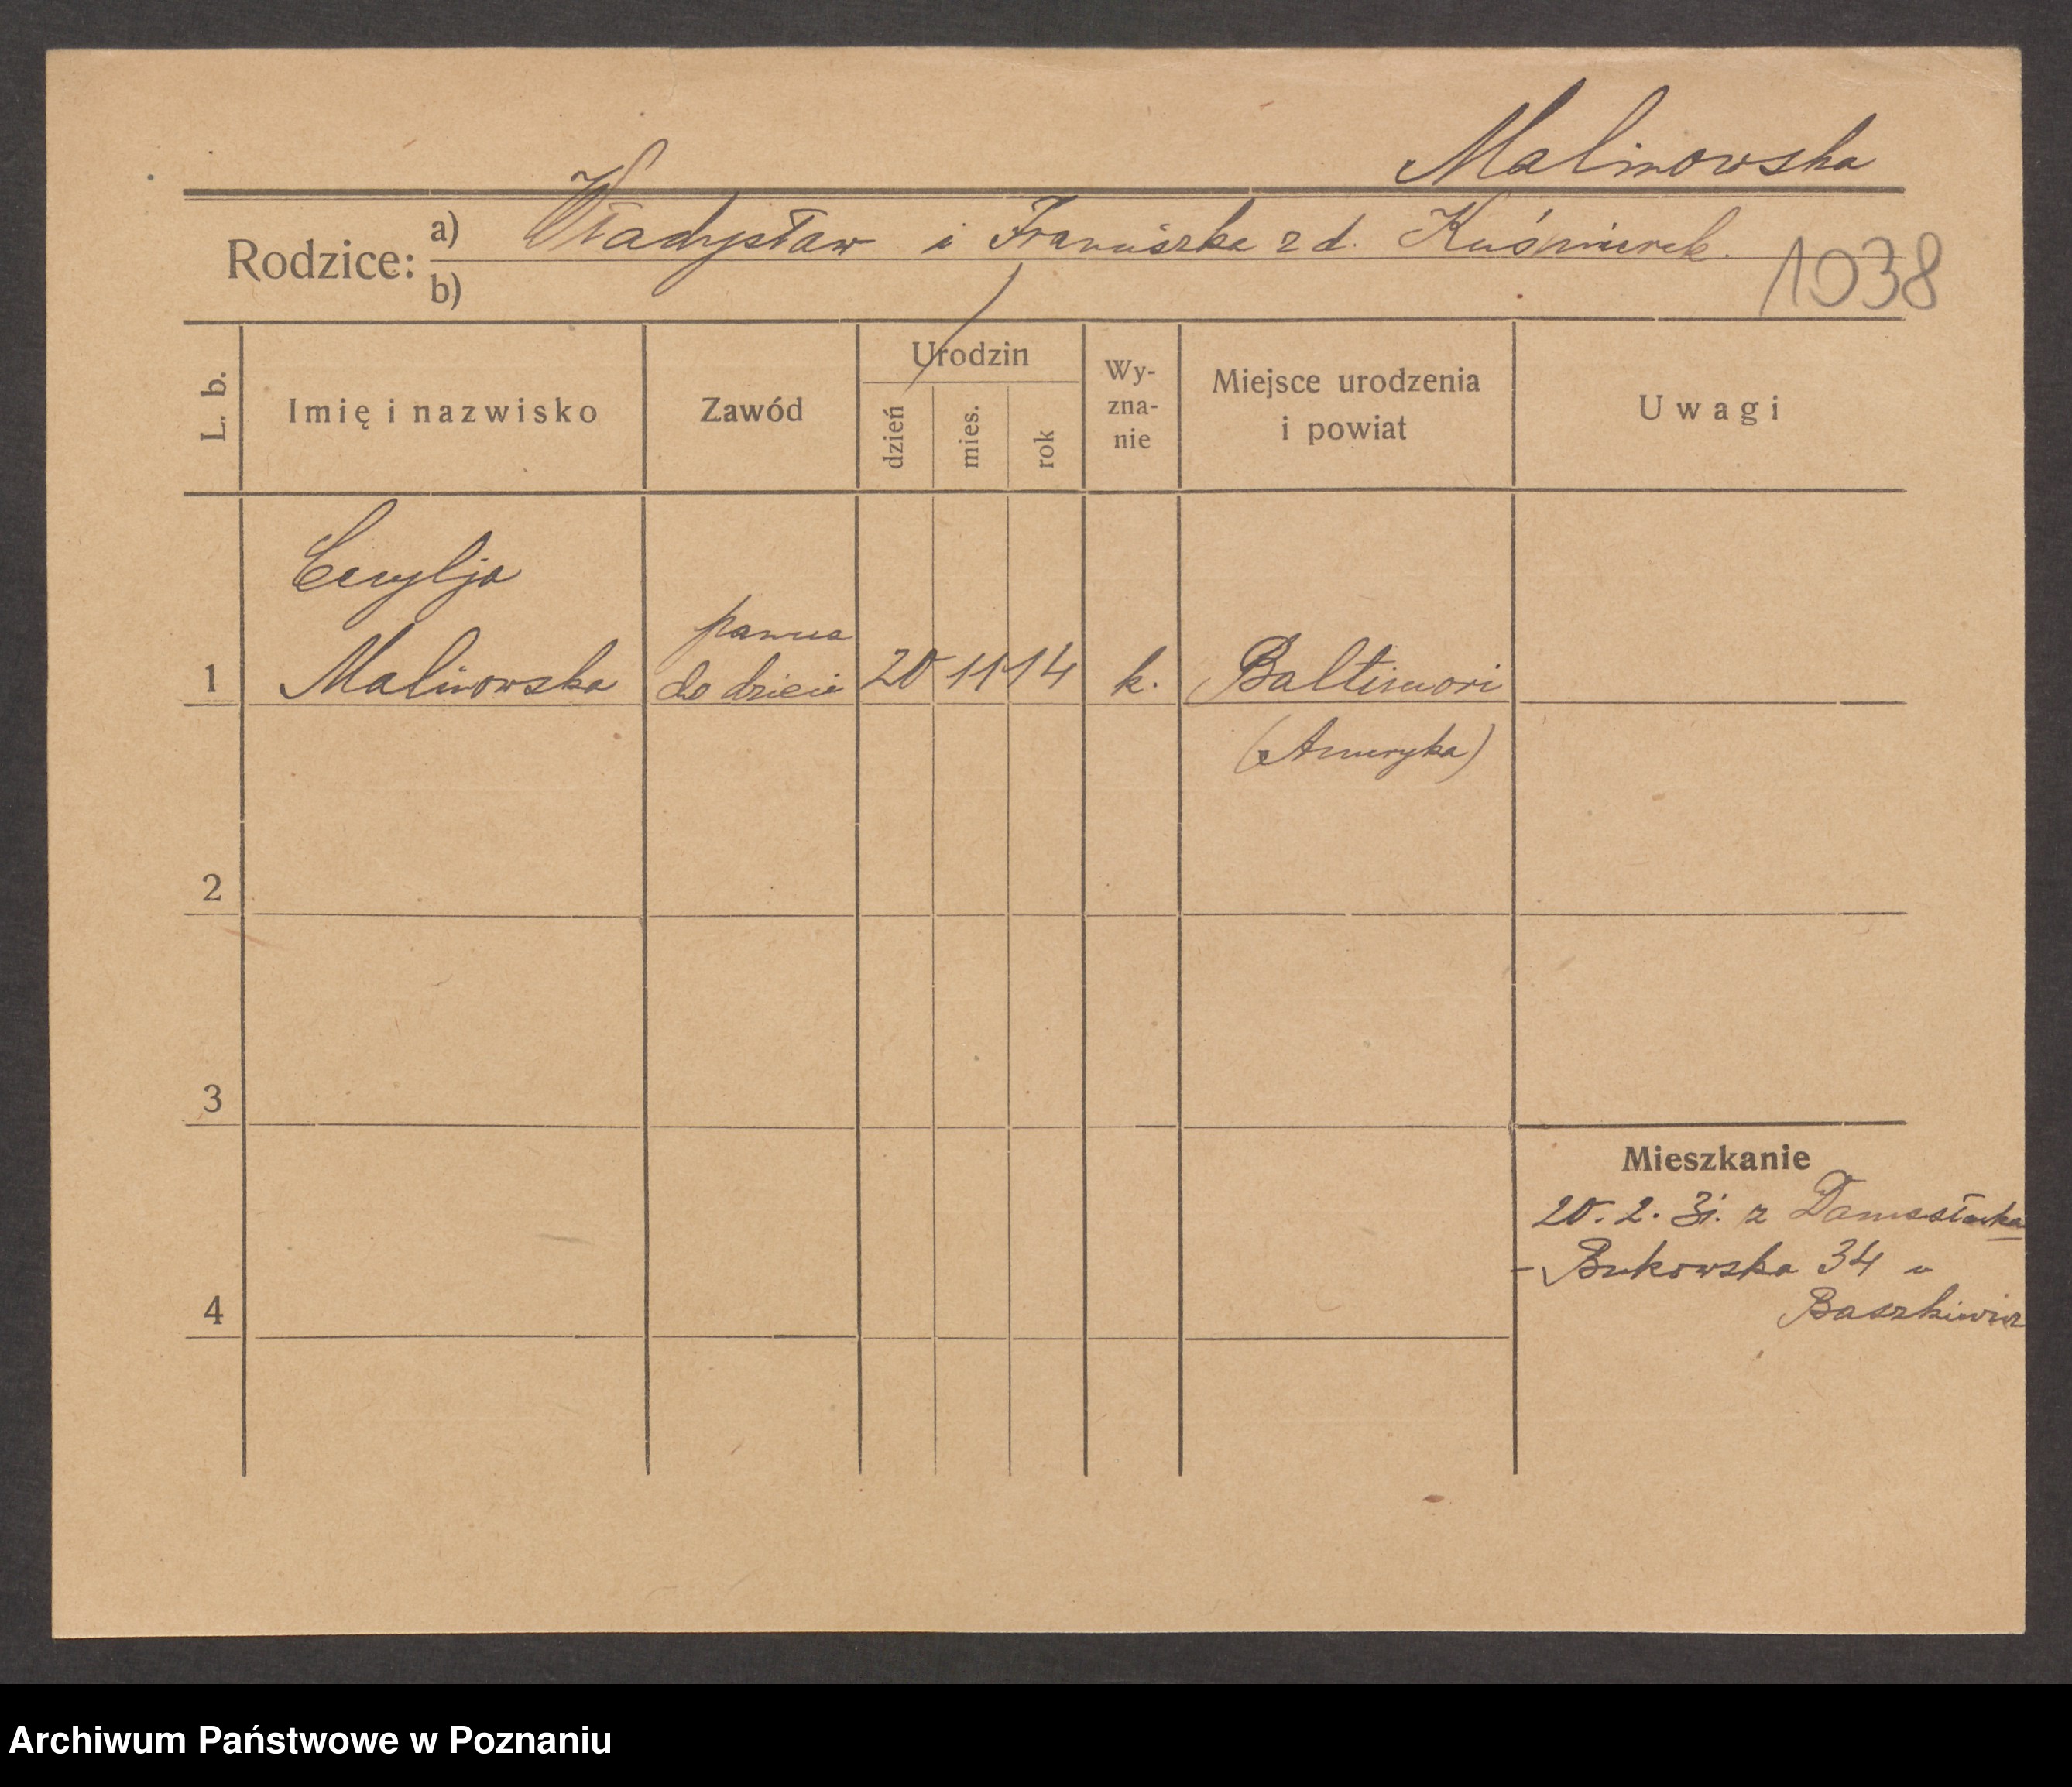 Malinowska
Rodzice: a) Władysław i Franciszka z d. Kuśnierek.
b)
1038
L. b. Imię i nazwisko Zawód Urodzin dzień mies. rok Wy-zna-nie Miejsce urodzenia i powiat Uwagi
Cecylja
panna
1 Malinowska do dzieci 20 11 14 k. Baltimori
(Ameryka)
2
3
Mieszkanie
20. 2. 31. z Damasławka
- Bukowska 34 u
4 Baszkiewicz
Archiwum Państwowe w Poznaniu